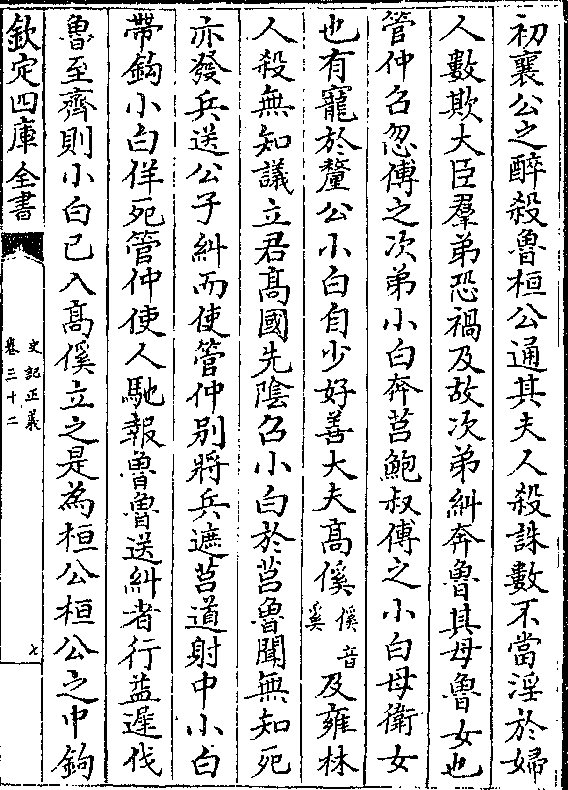 初襄公之醉殺魯桓公通其夫人殺誅數不當淫於婦
人數欺大臣羣弟恐禍及故次弟糾奔魯其母魯女也
管仲召忽傅之次弟小白奔莒鮑叔傅之小白母衛女
也有寵於釐公小白自少好善大夫高傒傒音奚及雍林
人殺無知議立君髙國先陰召小白於莒魯聞無知死
亦發兵送公子糾而使管仲别將兵遮莒道射中小白
帶鈎小白佯死管仲使人馳報魯魯送糾者行益遲伐
魯至齊則小白已入高傒立之是為桓公桓公之中鉤
欽定四庫全書
史記正義
卷三十二
七